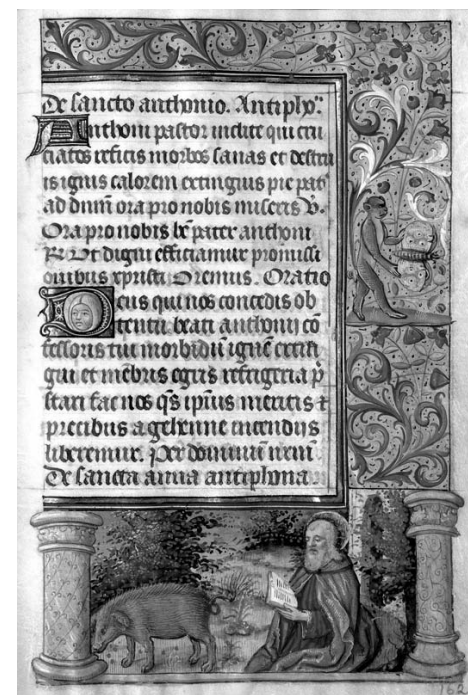 De sancto anthonio. Antiph̄.
Anthoni pastor inclite qui cru
ciatos reficis morbos sanas et destru
is ignis calorem extinguis pie pat̄
ad dn̄m ora pro nobis miseris V.
Ora pro nobis bē pater anthoni
R. Ut digni efficiamur promissi
onibus xpristi. Oremus. Oratio
Deus qui nos concedis ob
tentu beati anthonij cō
fessoris tui morbidū ignē exti
gui et mēbris egris refrigeria p̄
stari fac nos q̄s ip̄ius meritis ⁊
precibus a gehenne incendijs
liberemur. Per dominum
De sancta anna antiphona